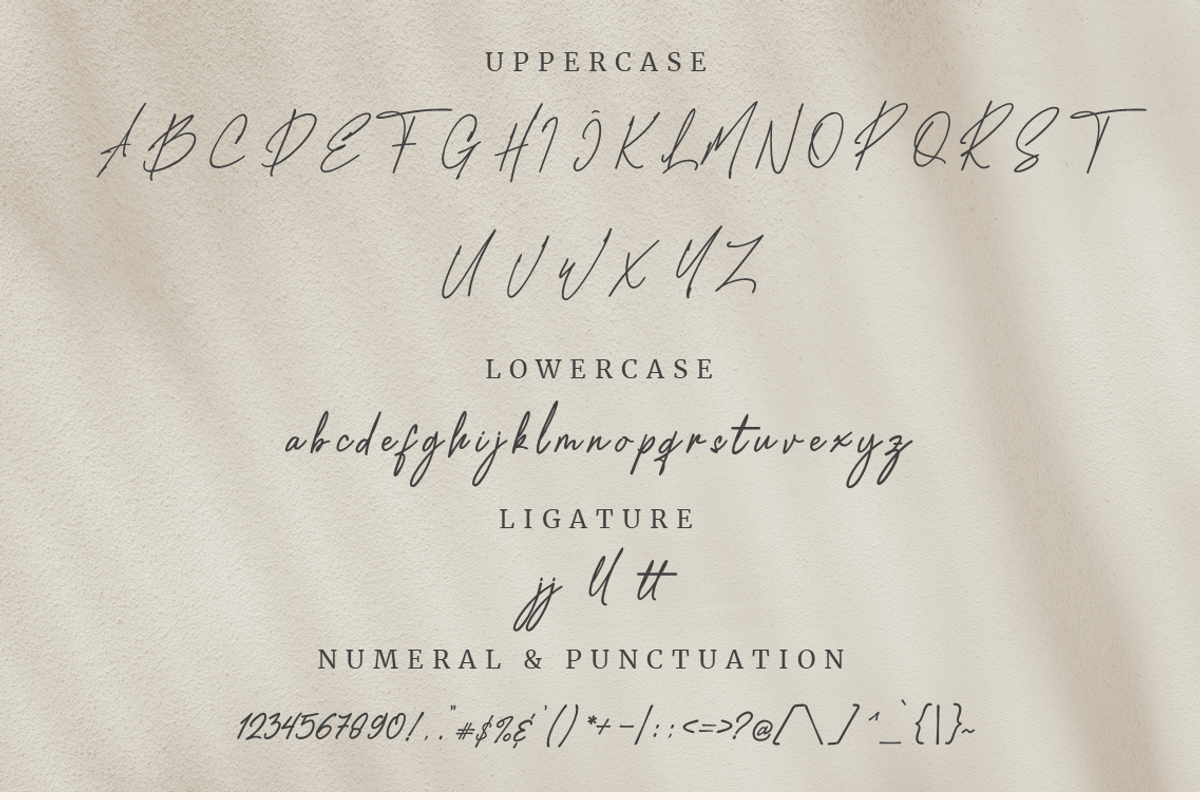 UPPERCASE
A B C D E F G H I J K L M N O P Q R S T
U V W X Y Z
LOWERCASE
a b c d e f g h i j k l m n o p q r s t u v e x y z
LIGATURE
jj ll tt
NUMERAL & PUNCTUATION
1234567890!..."#$%&'()*+-/:;<=>?@[\]^_`{|}~